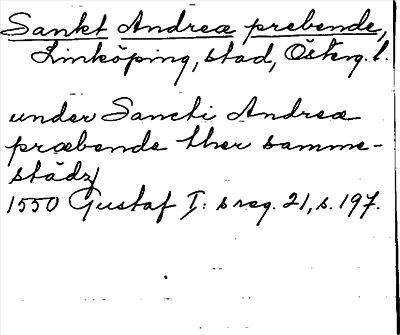 Sankt Andreæ prebende,
Linköping, stad, Österg. l.
under Sancti Andreæ
præbende ther samme-
städz
1550 Gustaf I:s reg. 21, s. 197.